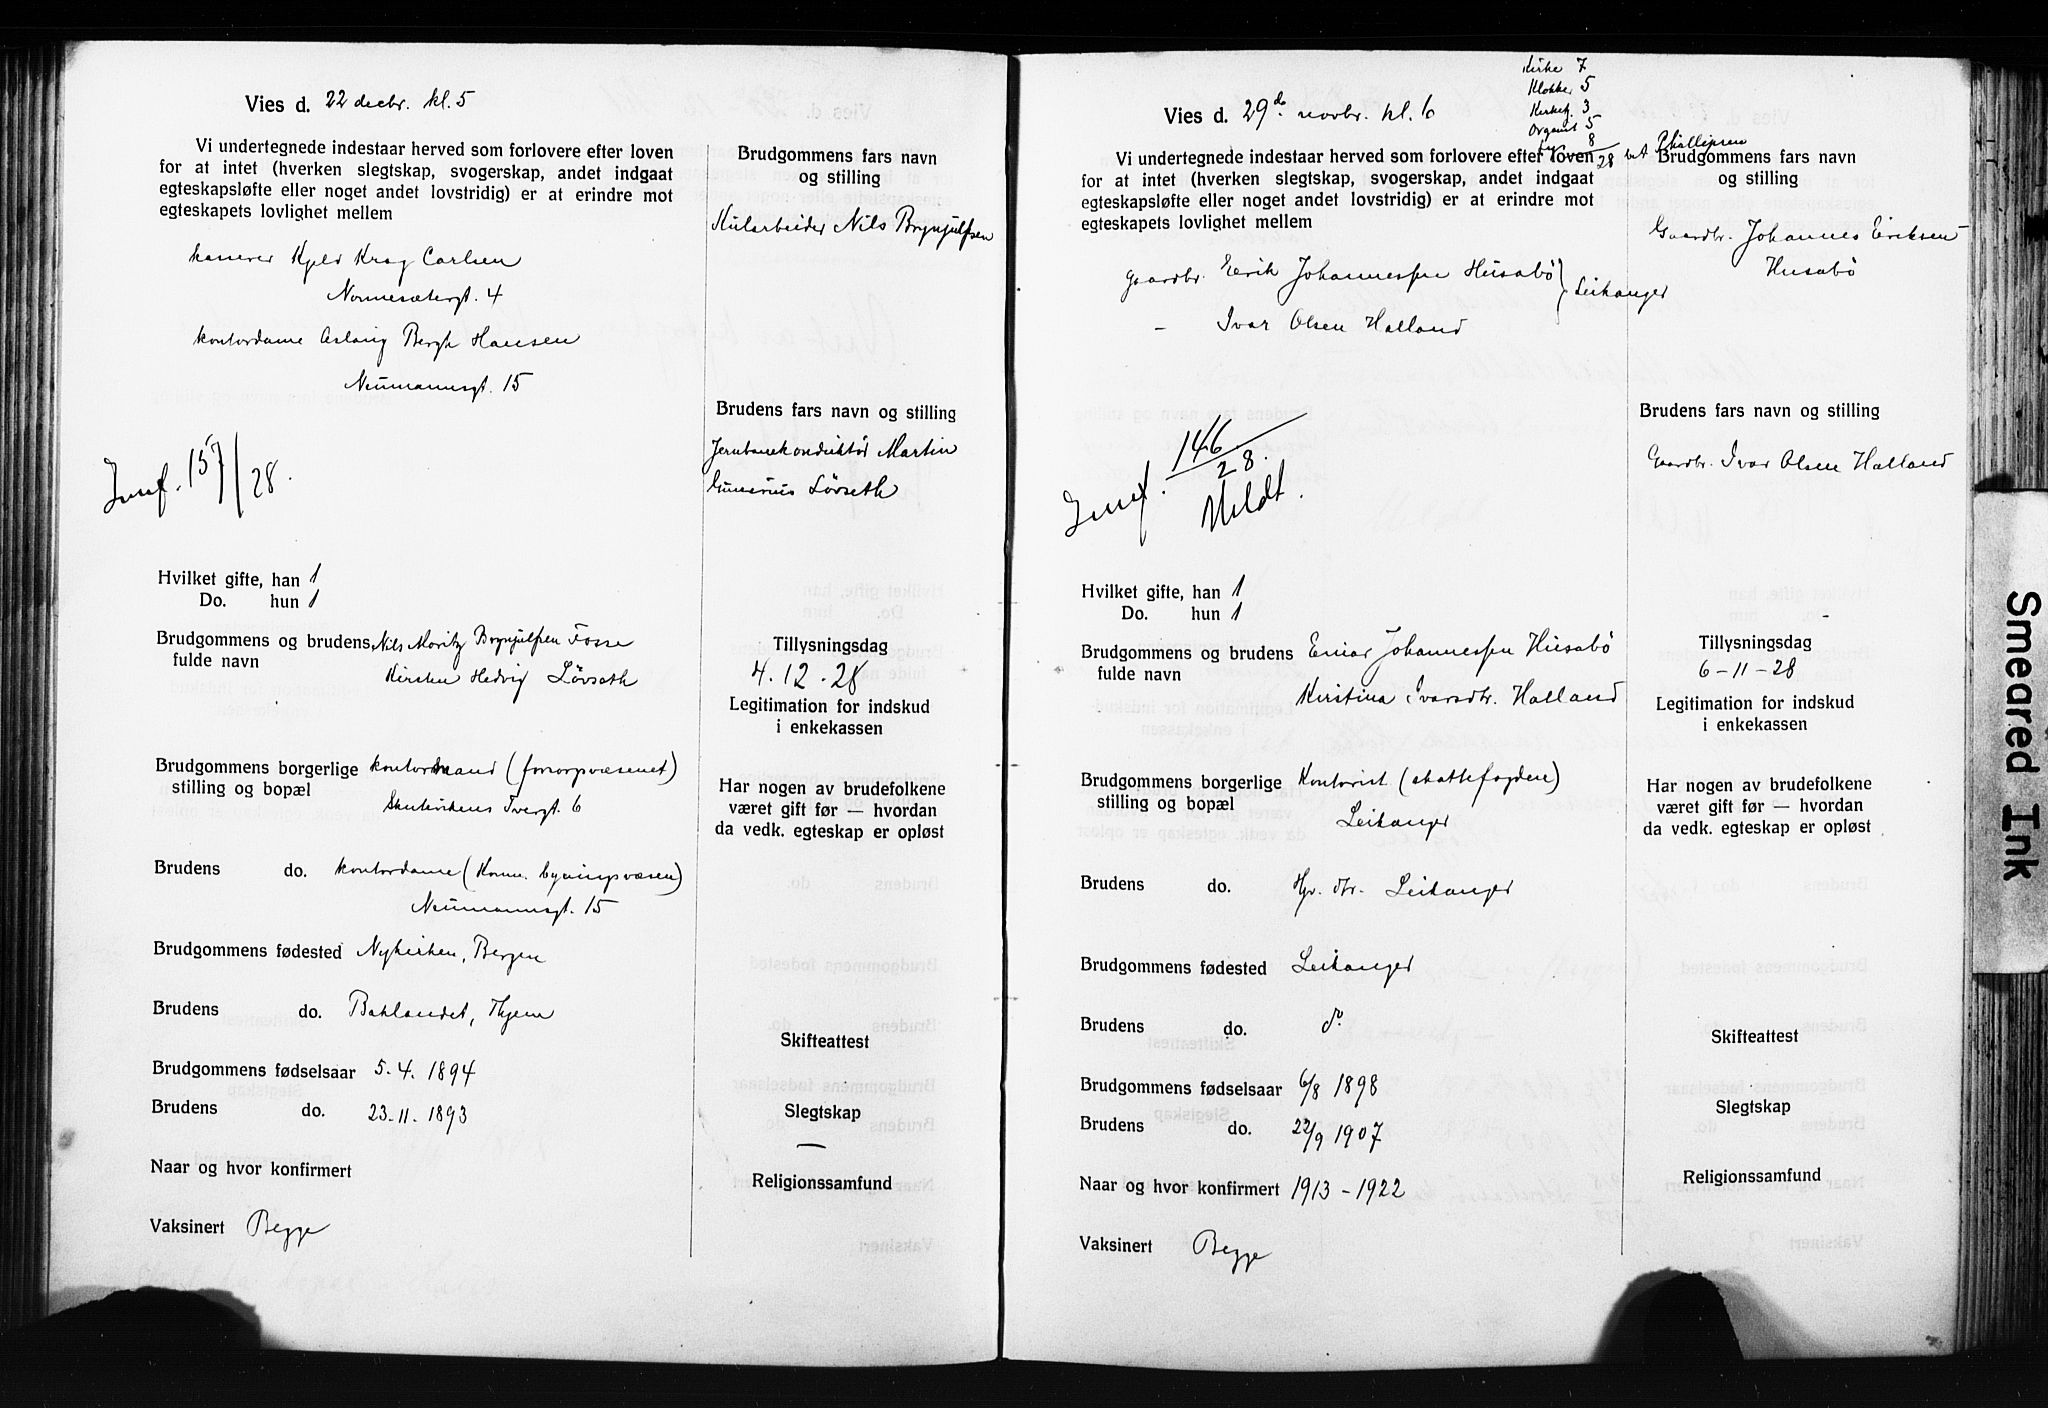 Vies d. 22 decbr. kl. 5
Vi undertegnede indestaar herved som forlovere efter loven
for at intet (hverken slegtskap, svogerskap, andet indgaat
egteskapsløfte eller noget andet lovstridig) er at erindre mot
egteskapets lovlighet mellem
kasserer Krag Carlsen
Nonnesætergt. 4
kontordame Aslaug Bergh Hansen
Neumannsgt. 15
Innf. 157/28.
Hvilket gifte, han 1
Do. hun 1
Brudgommens og brudens Nils Moritz Brynjulfsen Fosse
fulde navn
Kirsten Hedvig Løvseth
Brudgommens borgerlige kontormand (forsorgsvæsenet)
stilling og bopæl
Skutevikens Tvergt. 6
Brudens do. kontordame (Komm. bygningsvæsen)
Neumannsgt. 15
Brudgommens fødested Nykirken, Bergen
Brudens do. Baklandet, Thjem
Brudgommens fødselsaar 5.4. 1894
Brudens do. 23.11.1893
Naar og hvor konfirmert
Vaksinert Begge
Brudgommens fars navn
og stilling
Kularbeider Nils Brynjulfsen
Brudens fars navn og stilling
Jernbanekonduktør Martin
Gunerius Løvseth
Tillysningsdag
4.12.28
Legitimation for indskud
i enkekassen
Har nogen av brudefolkene
været gift før — hvordan
da vedk. egteskap er opløst
Skifteattest
Slegtskap
—
Religionssamfund
Kirke 7
Klokker 5
Kirket. 3
Organist 5
8
28 bet Phillipsen
Vies d. 29de novbr. kl. 6
Vi undertegnede indestaar herved som forlovere efter loven
for at intet (hverken slegtskap, svogerskap, andet indgaat
egteskapsløfte eller noget andet lovstridig) er at erindre mot
egteskapets lovlighet mellem
Gaardbr. Eirik Johannessen Husabø } Leikanger
- Ivar Olsen Halland
Innf. 146/28.
Meldt.
Hvilket gifte, han 1
Do. hun 1
Brudgommens og brudens Einar Johannessen Husabø
fulde navn
Kirstina Ivarsdtr. Halland
Brudgommens borgerlige Kontorist (skattefogden)
stilling og bopæl
Leikanger
Brudens do. Hjv. dtr. Leikanger
Brudgommens fødested Leikanger
Brudens do. do.
Brudgommens fødselsaar 6/8 1898
Brudens do. 22/9 1907
Naar og hvor konfirmert 1913 - 1922
Vaksinert Begge
Brudgommens fars navn
og stilling
Gaardbr. Johannes Eriksen
Husabø
Brudens fars navn og stilling
Gaardbr. Ivar Olsen Halland
Tillysningsdag
6-11-28
Legitimation for indskud
i enkekassen
Har nogen av brudefolkene
været gift før — hvordan
da vedk. egteskap er opløst
Skifteattest
Slegtskap
Religionssamfund
Smeared Ink